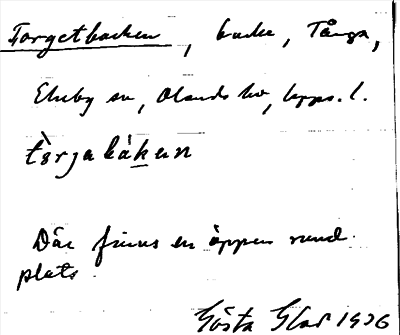 Torgetbacken, backe, Tånga,
Ekeby sn, Olands hd, Upps. l.
tòrjabákun
Där finns en öppen rund
plats.
Gösta Glas 1926